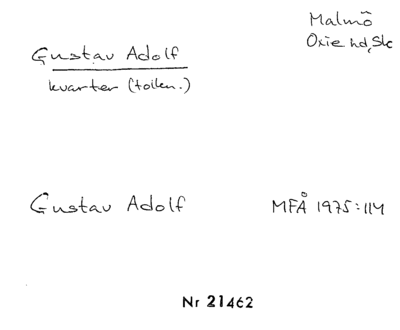 Malmö
Oxie hd, Sk
Gustav Adolf
kvarter (tolkn.)
Gustav Adolf
MFÅ 1975:114
Nr 21462